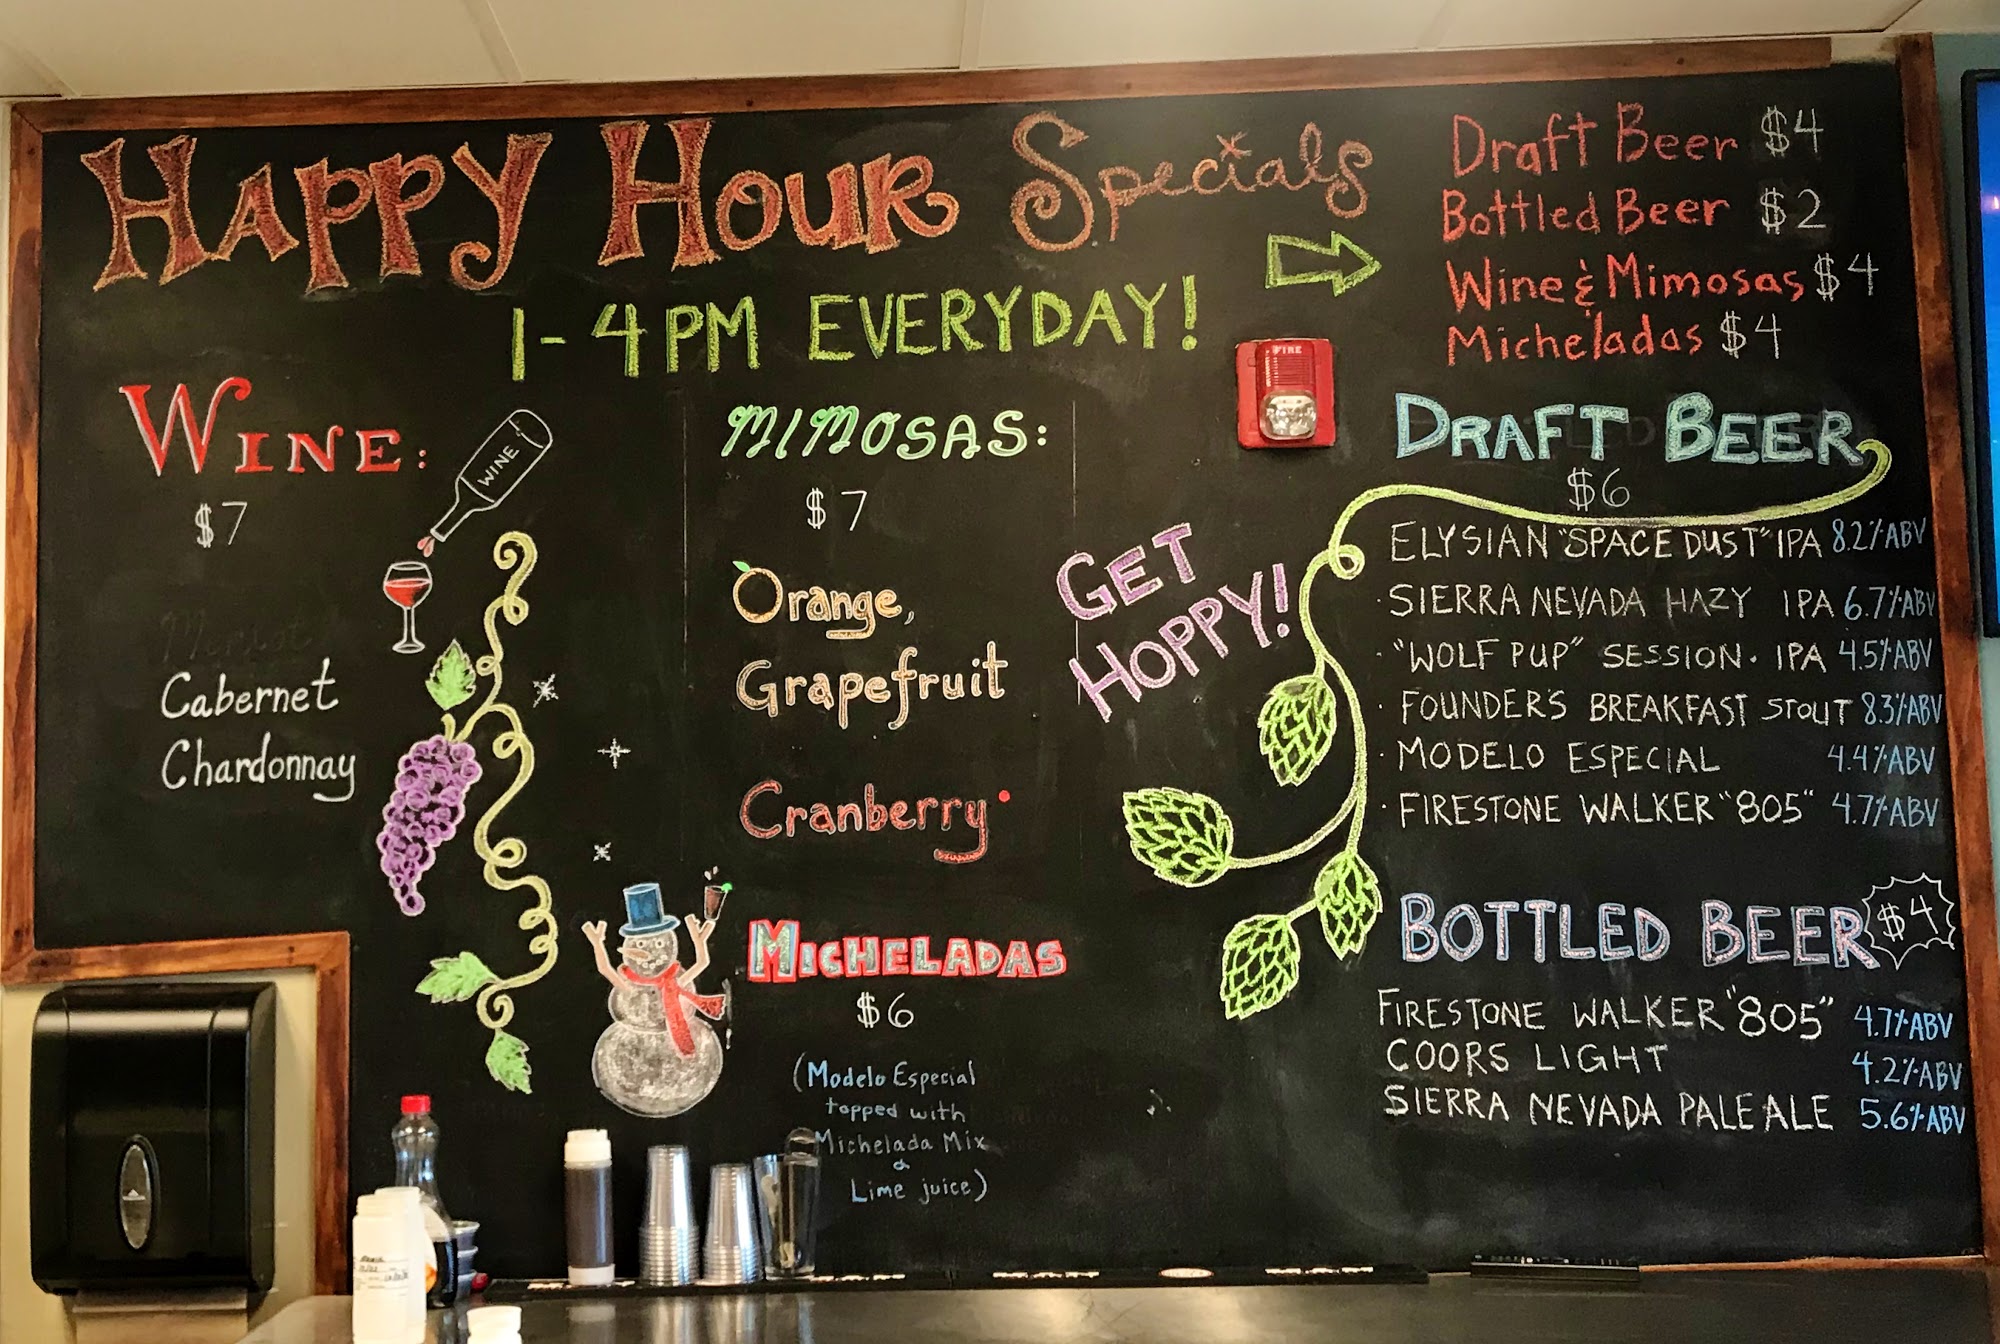 Happy Hour Specials
1-4PM EVERYDAY!
Draft Beer $4
Bottled Beer $2
Wine & Mimosas $4
Micheladas $4
FIRE
WINE:
$7
WINE
Merlot
Cabernet
Chardonnay
MIMOSAS:
$7
Orange,
Grapefruit
Cranberry
MICHELADAS
$6
(Modelo Especial
topped with
Michelada Mix
&
Lime juice)
GET
HOPPY!
DRAFT BEER
$6
ELYSIAN "SPACE DUST" IPA 8.2% ABV
· SIERRA NEVADA HAZY IPA 6.7% ABV
· "WOLF PUP" SESSION · IPA 4.5% ABV
· FOUNDER'S BREAKFAST STOUT 8.3% ABV
· MODELO ESPECIAL 4.4% ABV
· FIRESTONE WALKER "805" 4.7% ABV
BOTTLED BEER $4
FIRESTONE WALKER "805" 4.7% ABV
COORS LIGHT 4.2% ABV
SIERRA NEVADA PALE ALE 5.6% ABV